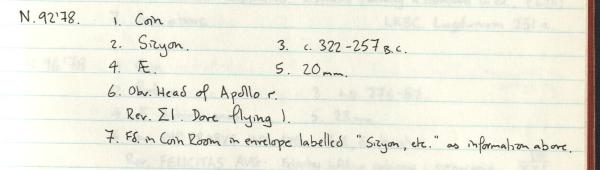 N.92'78. 1. Coin
2. Sizyon. 3. c. 322-257 B.C.
4. Æ. 5. 20mm.
6. Obv. Head of Apollo r.
Rev. ΣI. Dove flying l.
7. Fd. in Coin Room in envelope labelled "Sizyon, etc." as information above.